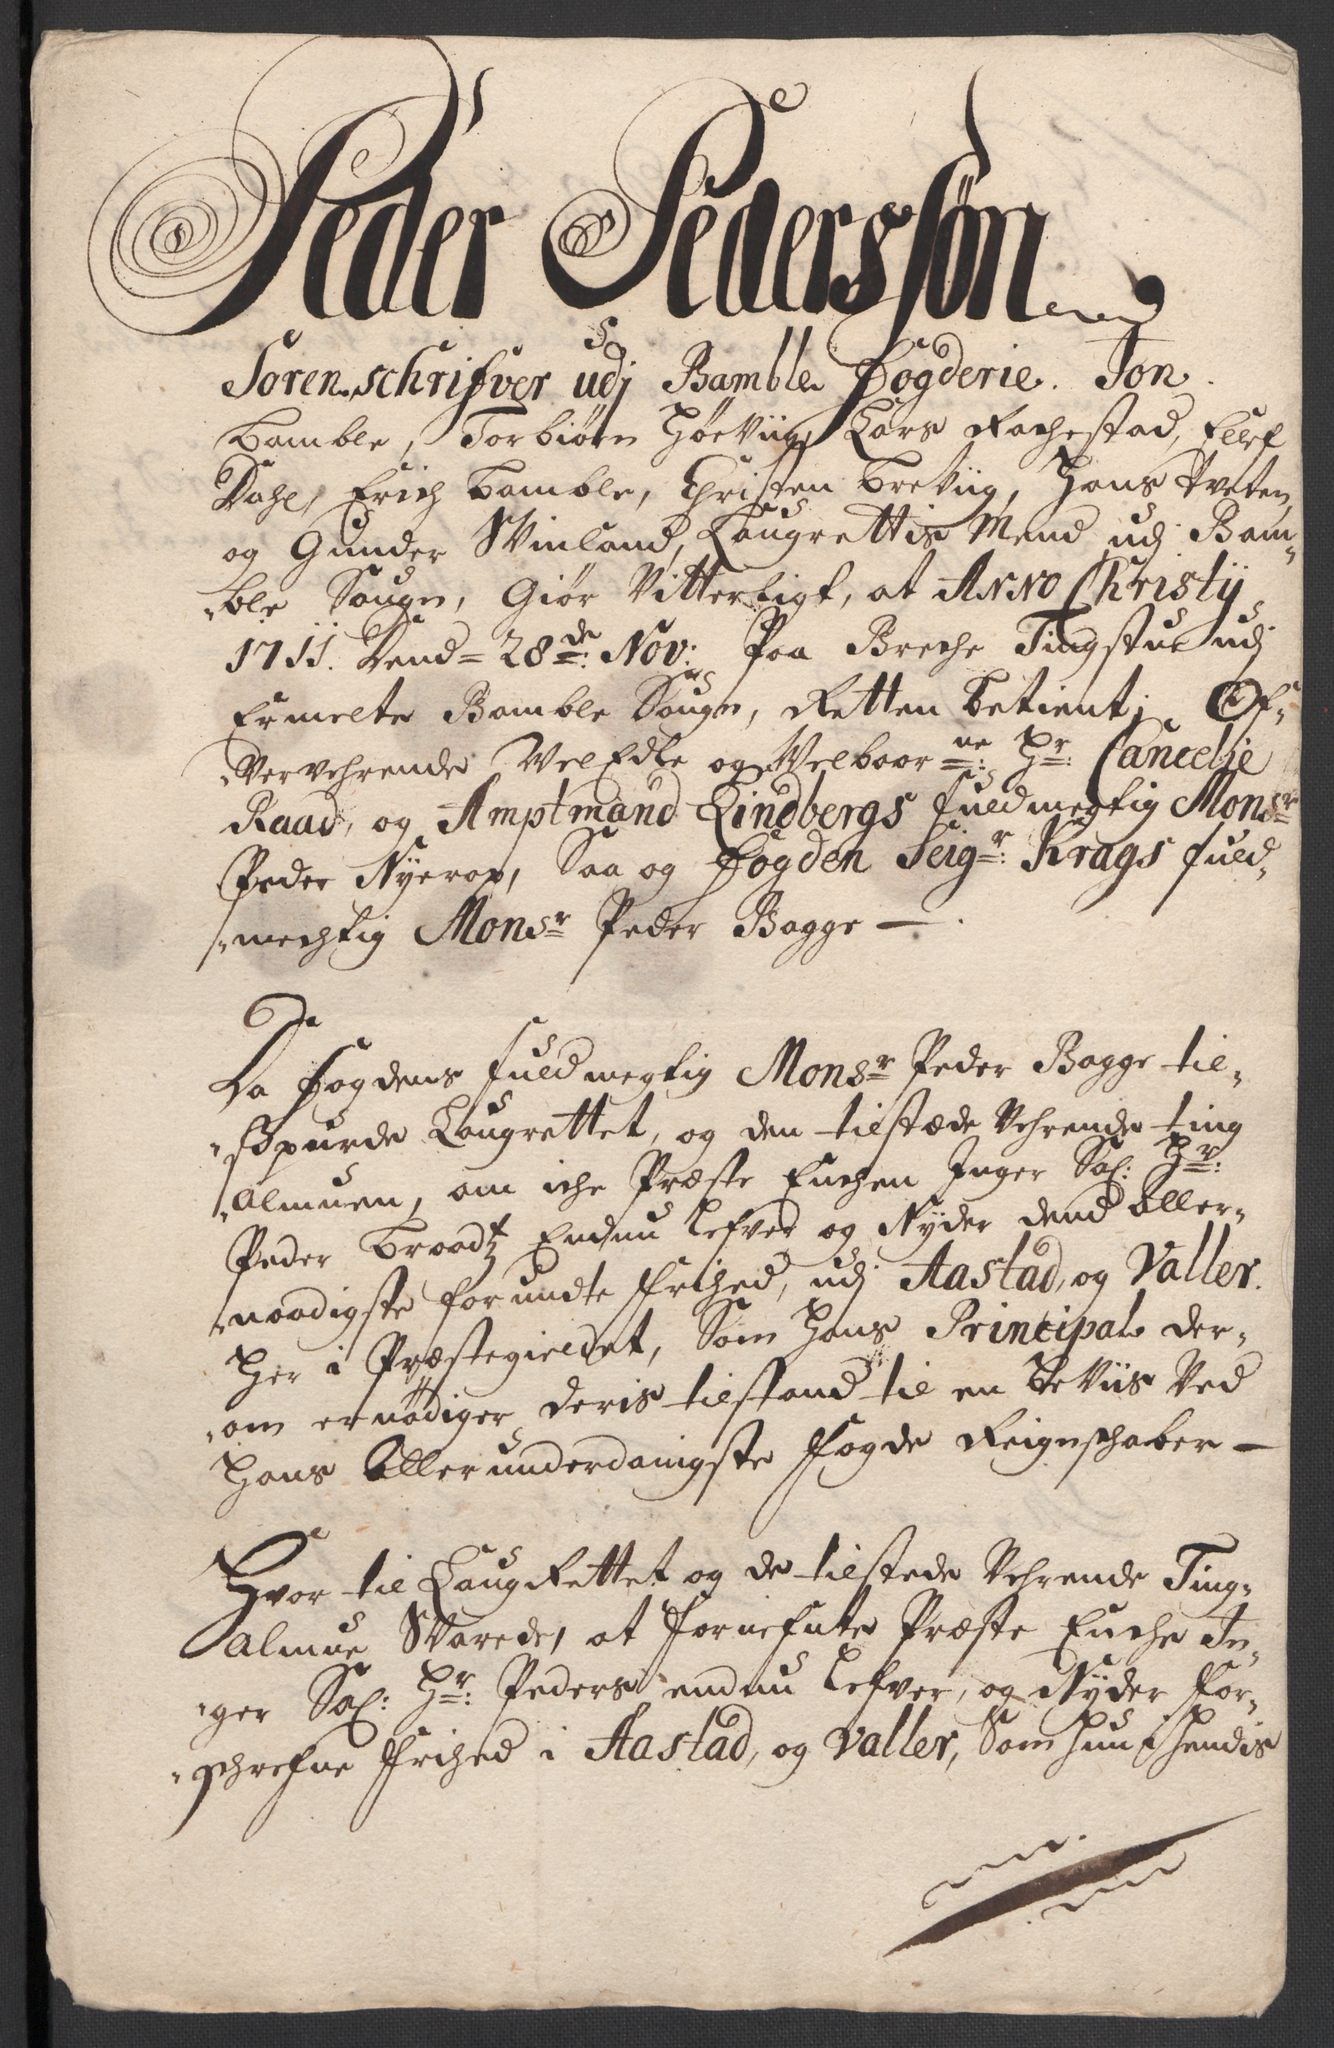 Peder Pedersøn
Sorenschrifver udj Bamble Fogderie. Jon
Bamble, Torbiøn Høeviig, Lars Rachestad, Ellef
Dahl, Erich Bamble, Christen Breviig, Hans Tveten,
og Gunder Winland, Laugrettis Mend udj Bam-
-ble Sougn, Giør Vitterligt, at Anno Christij
1711. Dend = 28de: Nov: Paa Breche Tingstue udj
Ermelte Bamble Sougn, Retten betient; Of-
-Ververende WelEdle og Welbaarne: Hr: Cancelie
Raad, og Amptmand Lindbergs fuldmegtig Monsr
Peder Nyerop, Saa og Fogden Seigr: Krags fuld-
-mechtig Monsr Peder Bagge —
Da Fogdens fuldmegtig Monsr Peder Bagge til-
-Spurde Laugrettet, og den tilstæde Vehrende ting
Almuen, om iche Præste Enchen Inger Sal: Hr:
Peder Broodtz Endnu Lefver og Nyder dend aller-
-naadigste forundte Frihed, udj Aastad, og Valler.
Her i Præstegieldet, Som Hans Principal der-
-om er nødiger deris tilstand til en Beviis Ved
Hans Allerunderdanigste Fogde Reignschaber —
Hvor til LaugRettet og de tilstede Vehrende Ting-
Almue Svarede, at fornefnte Præste Enche In-
-ger Sal: Hr: Peders endnu Lefver, og Nyder for-
-schrefne Frihed i Aastad, og Valler, Som hun i hendis